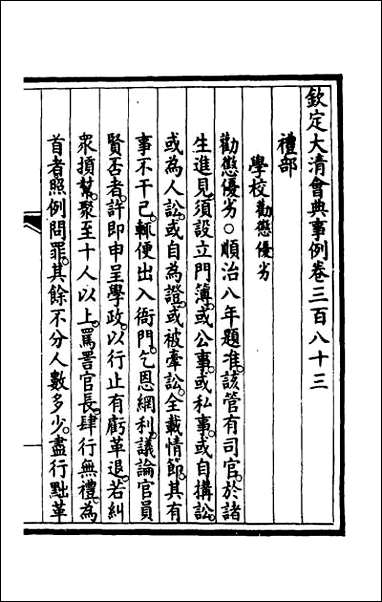 欽定大清會典事例卷三百八十三
禮部
學校勸懲優劣
勸懲優劣○順治八年題准。該管有司官。於諸
生進見。須設立門簿。或公事。或私事。或自搆訟。
或為人訟。或自為證。或被牽訟。全載情節。其有
事不干己。輒便出入衙門。乞恩網利。議論官員
賢否者。許即申呈學政。以行止有虧革退。若糾
衆損幫。聚至十人以上。罵詈官長。肆行無禮。為
首者照例問罪。其餘不分人數多少。盡行黜革